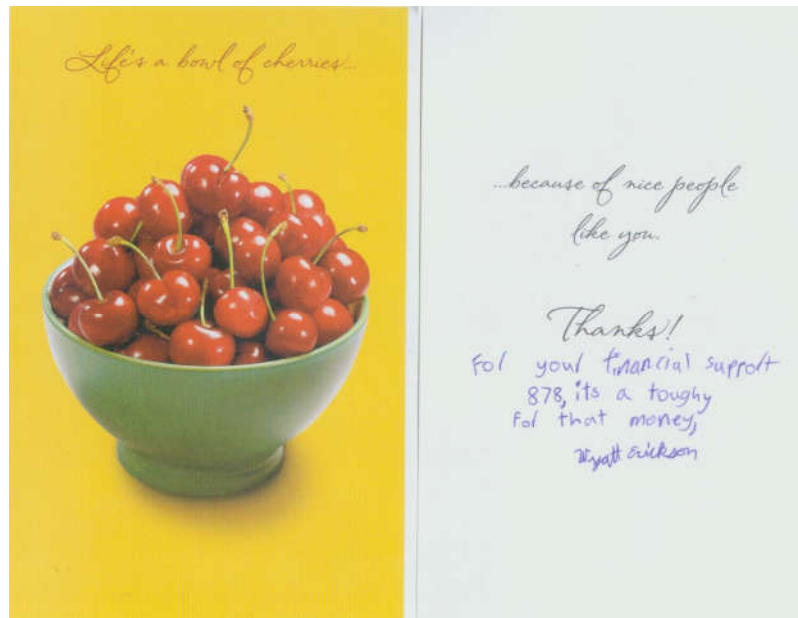 Life's a bowl of cherries...
...because of nice people
like you.
Thanks!
For your financial support
878, its a toughy
For that money,
Wyatt Erickson